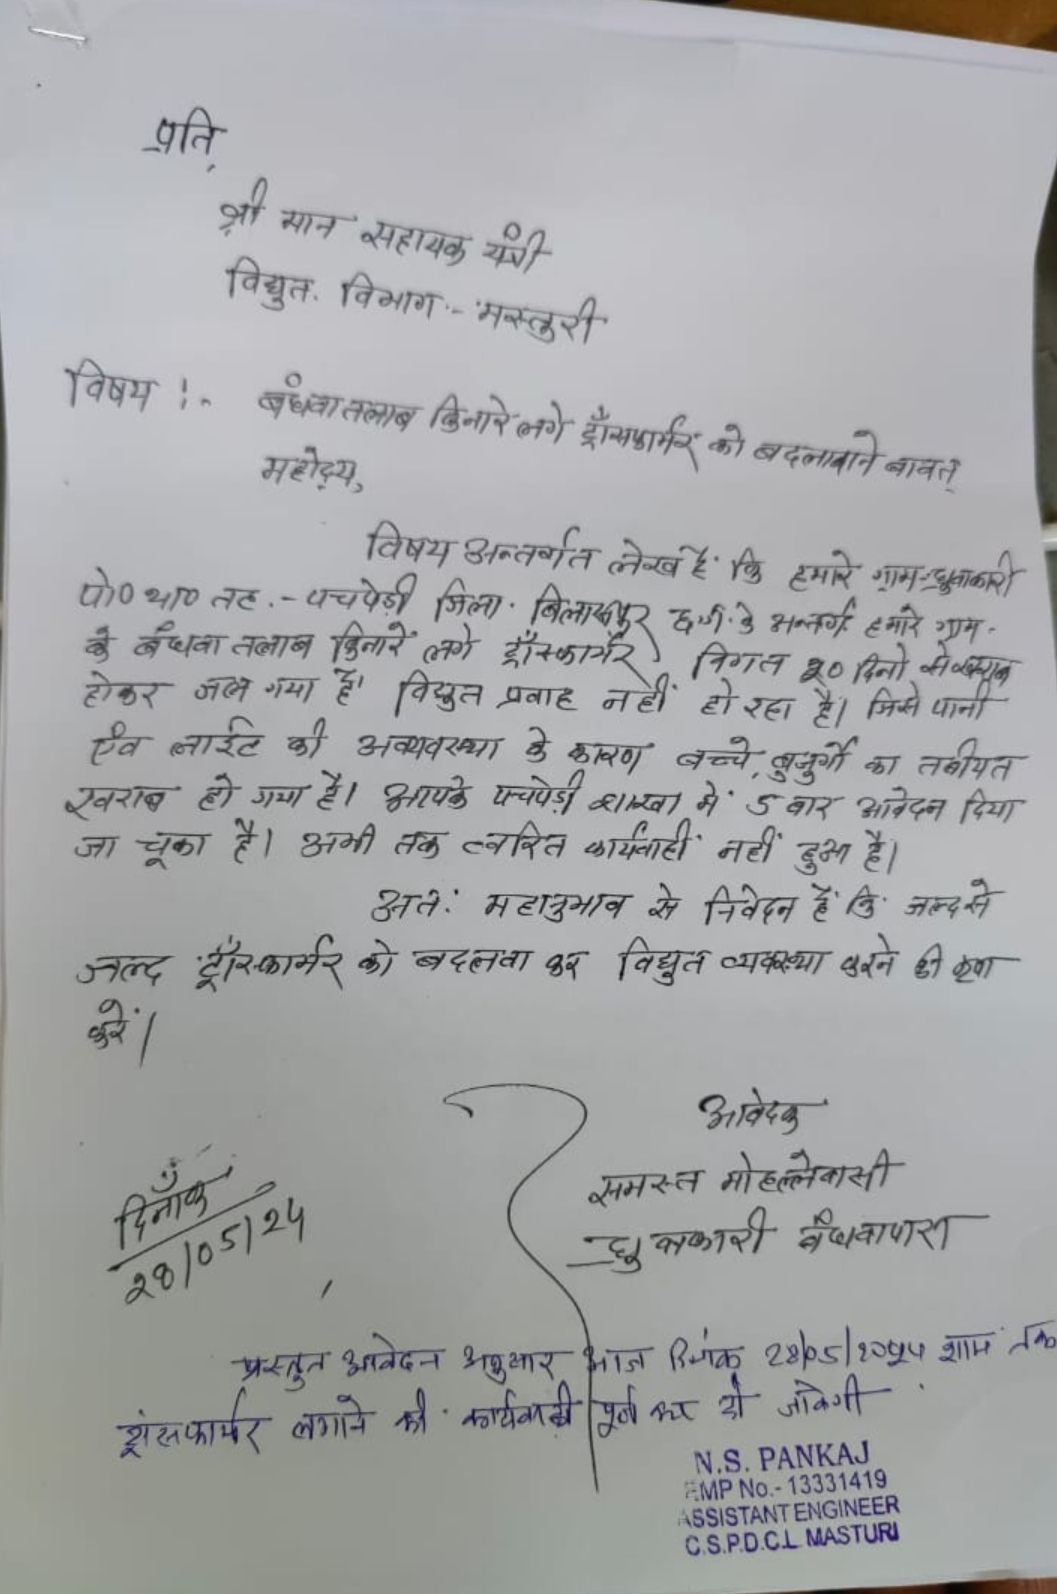 प्रति,
श्री मान सहायक यंत्री
विद्युत. विभाग :- मस्तुरी
विषय :- बंधवा तलाब किनारे लगे ट्राँसफार्मर को बदलावाने बावत्
महोद्य,
विषय अन्तर्गत लेख है कि हमारे ग्राम-ध्रुवाकारी
पो0 था0 तह. - पचपेड़ी जिला. बिलासपुर छ.ग. के अन्तर्गत हमारे ग्राम-
के बंधवा तलाब किनारें लगे ट्राँस्फार्मर विगत 20 दिनो से खराब
होकर जल गया है। विद्युत प्रवाह नहीं हो रहा है। जिसे पानी
एंव लाईट की अव्यवस्था के कारण बच्चे, बुजुर्गो का तबीयत
खराब हो गया है। आपके पचपेड़ी शाखा में 5 बार आवेदन दिया
जा चूका है। अभी तक त्वरित कार्यवाही नहीं हुआ है।
अतः महानुभाव से निवेदन है कि जल्द से
जल्द ट्राँस्फार्मर को बदलवा कर विद्युत व्यवस्था करने की कृपा
करें।
आवेदक
समस्त मोहल्लेवासी
ध्रुवाकारी बंधवापारा
दिनाँक
28/05/24
प्रस्तुत आवेदन अनुसार आज दिनांक 28/05/2024 शाम तक
ट्रांसफार्मर लगाने की कार्यवाही पूर्ण कर दी जावेगी
N.S. PANKAJ
EMP No.- 13331419
ASSISTANT ENGINEER
C.S.P.D.C.L. MASTURI